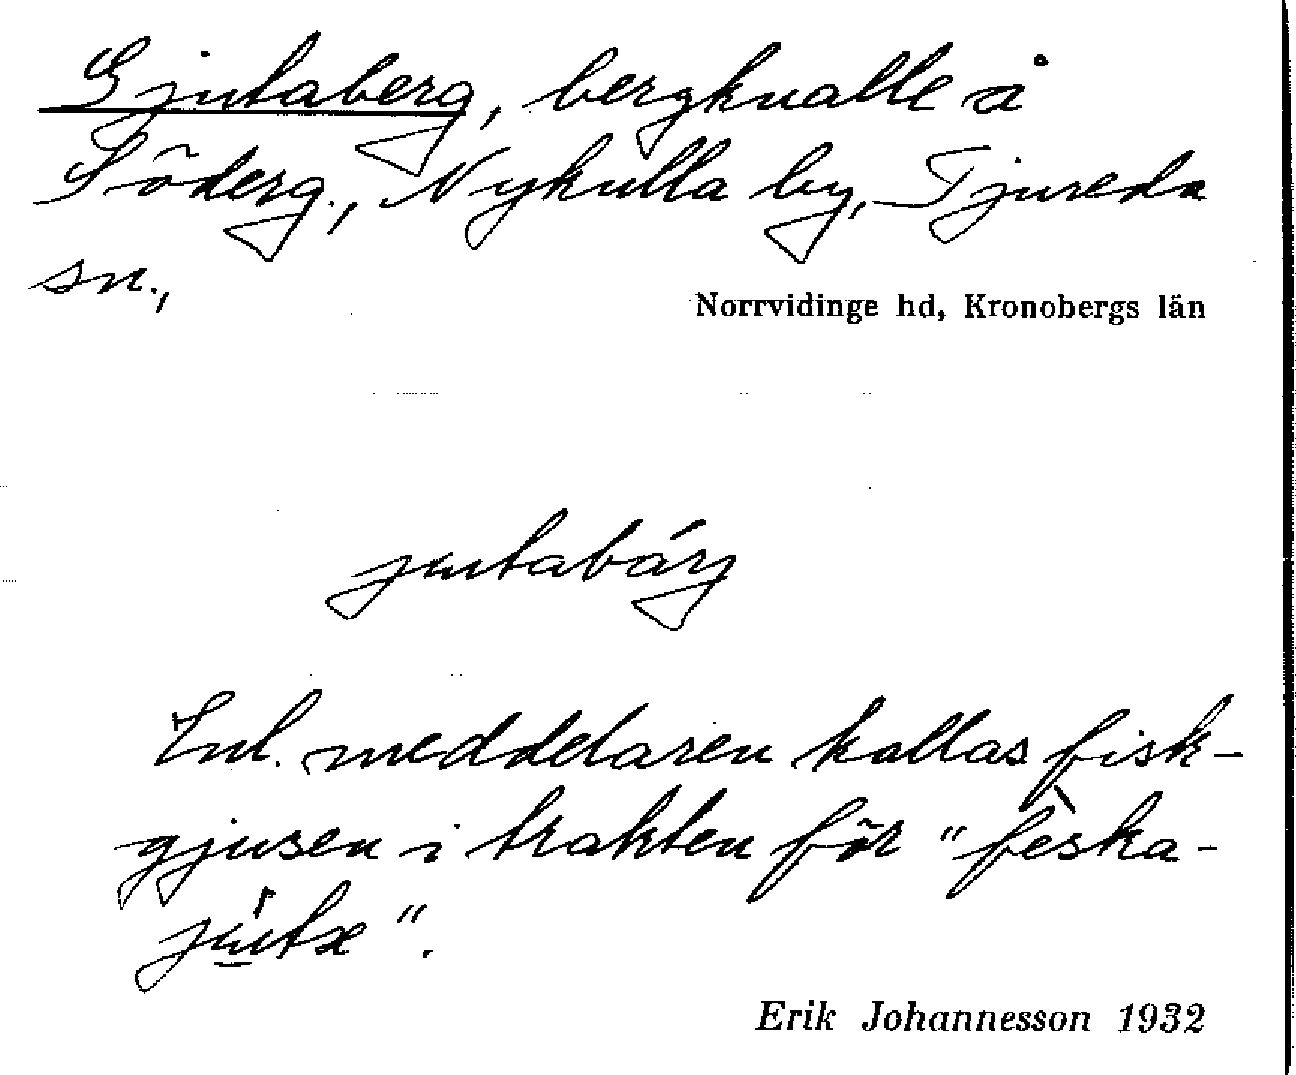 Gjutaberg, bergknalle å
Söderg., Nykulla by, Tjureda
sn.,
Norrvidinge hd, Kronobergs län
jutabárj
Enl. meddelaren kallas fisk-
gjusen i trakten för "fèska-
jútx".
Erik Johannesson 1932